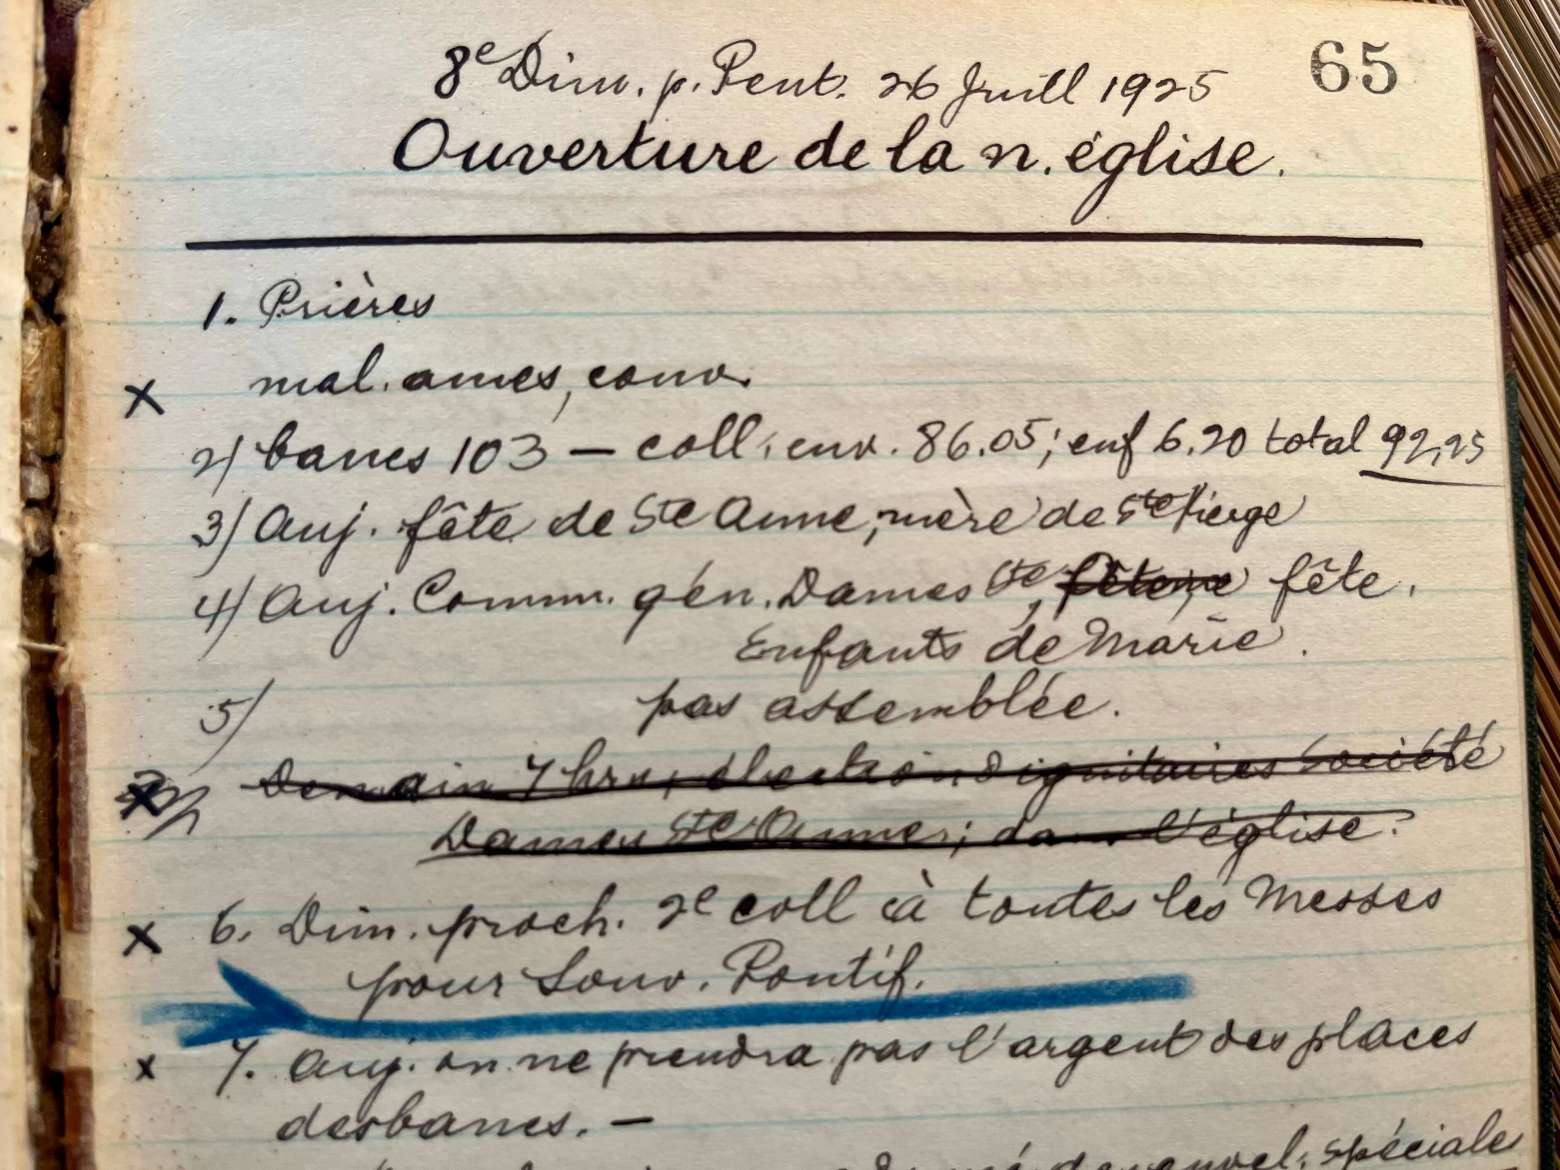 65
8e Dim. p. Pent. 26 Juill 1925
Ouverture de la n. église.
1. Prières
x mal. ames, conv.
2) bancs 103 — coll. env. 86.05; enf 6.20 total 92,25
3) Auj. fête de Ste Anne, mère de Ste Vierge
4) Auj. Comm. gén. Dames Ste, fête.
Enfants de Marie.
5) pas assemblée.
Demain 7 hrs, élection dignitaires Société
Dames Ste Anne; dans l'église.
x 6. Dim. proch. 2e coll à toutes les Messes
pour Souv. Pontif.
x 7. Auj. on ne prendra pas l'argent des places
des bancs. —
spéciale